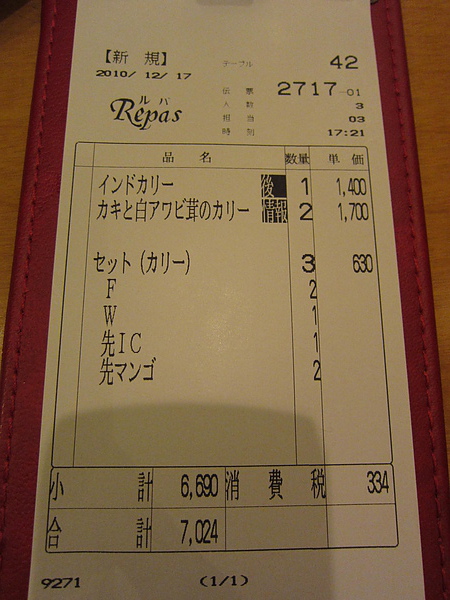 【新 規】
テーブル 42
2010/ 12/ 17
伝票 2717-01
人数 3
ル パ
Repas
担当 03
時刻 17:21
品 名 数量 単 価
インドカリー 後 1 1,400
カキと白アワビ茸のカリー 情報 2 1,700
セット(カリー) 3 630
F 2
W 1
先IC 1
先マンゴ 2
小 計 6,690 消 費 税 334
合 計 7,024
9271 (1/1)